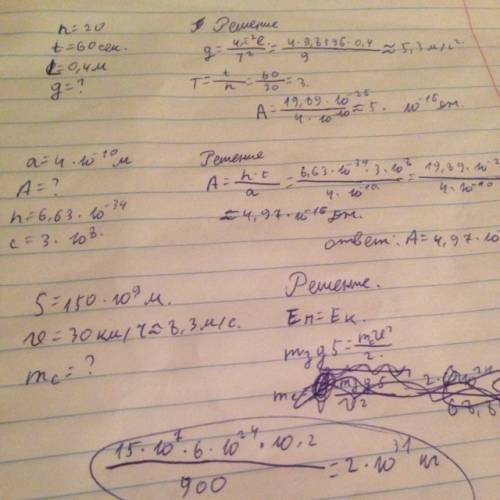 n=20
t=60 сек.
l=0,4 м
g=?
Решение
g = 4π²l / T² = 4·9,8596·0,4 / 9 ≈ 5,3 м/с².
T = t / n = 60 / 20 = 3.
A = 19,89·10⁻²⁶ / 4·10⁻¹⁰ ≈ 5· 10⁻¹⁶ Дж.
a=4·10⁻¹⁰ м
A=?
h=6,63·10⁻³⁴
c=3·10⁸.
Решение
A = h·c / a = 6,63·10⁻³⁴·3·10⁸ / 4·10⁻¹⁰ = 19,89·10⁻² / 4·10⁻¹⁰
≈ 4,97·10⁻¹⁶ Дж.
ответ: A=4,97·10
S=150·10⁹ м.
v=30 км/ч≈8,3 м/с.
mc=?
Решение.
Еп=Ек.
mзgS = mcv² / 2.
15·10⁷·6·10²⁴·10·2 / 900 = 2·10³¹ кг